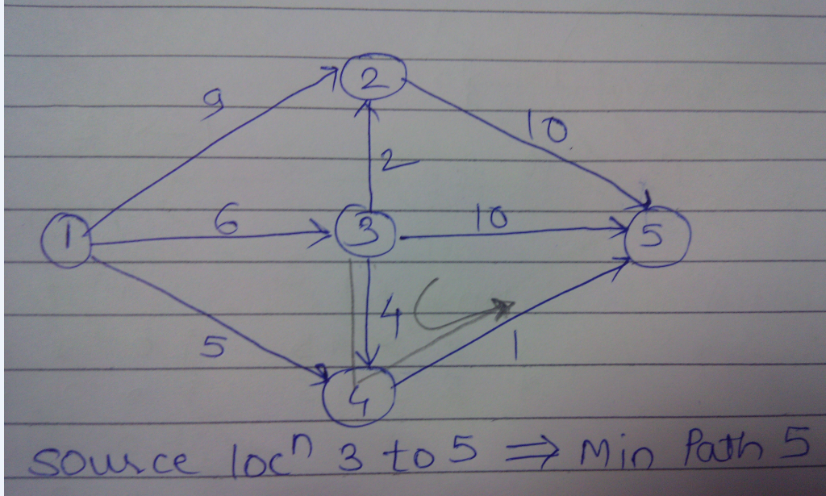 2
9
10
2
1
6
3
10
5
4
5
1
4
Source locⁿ 3 to 5 ⇒ Min Path 5